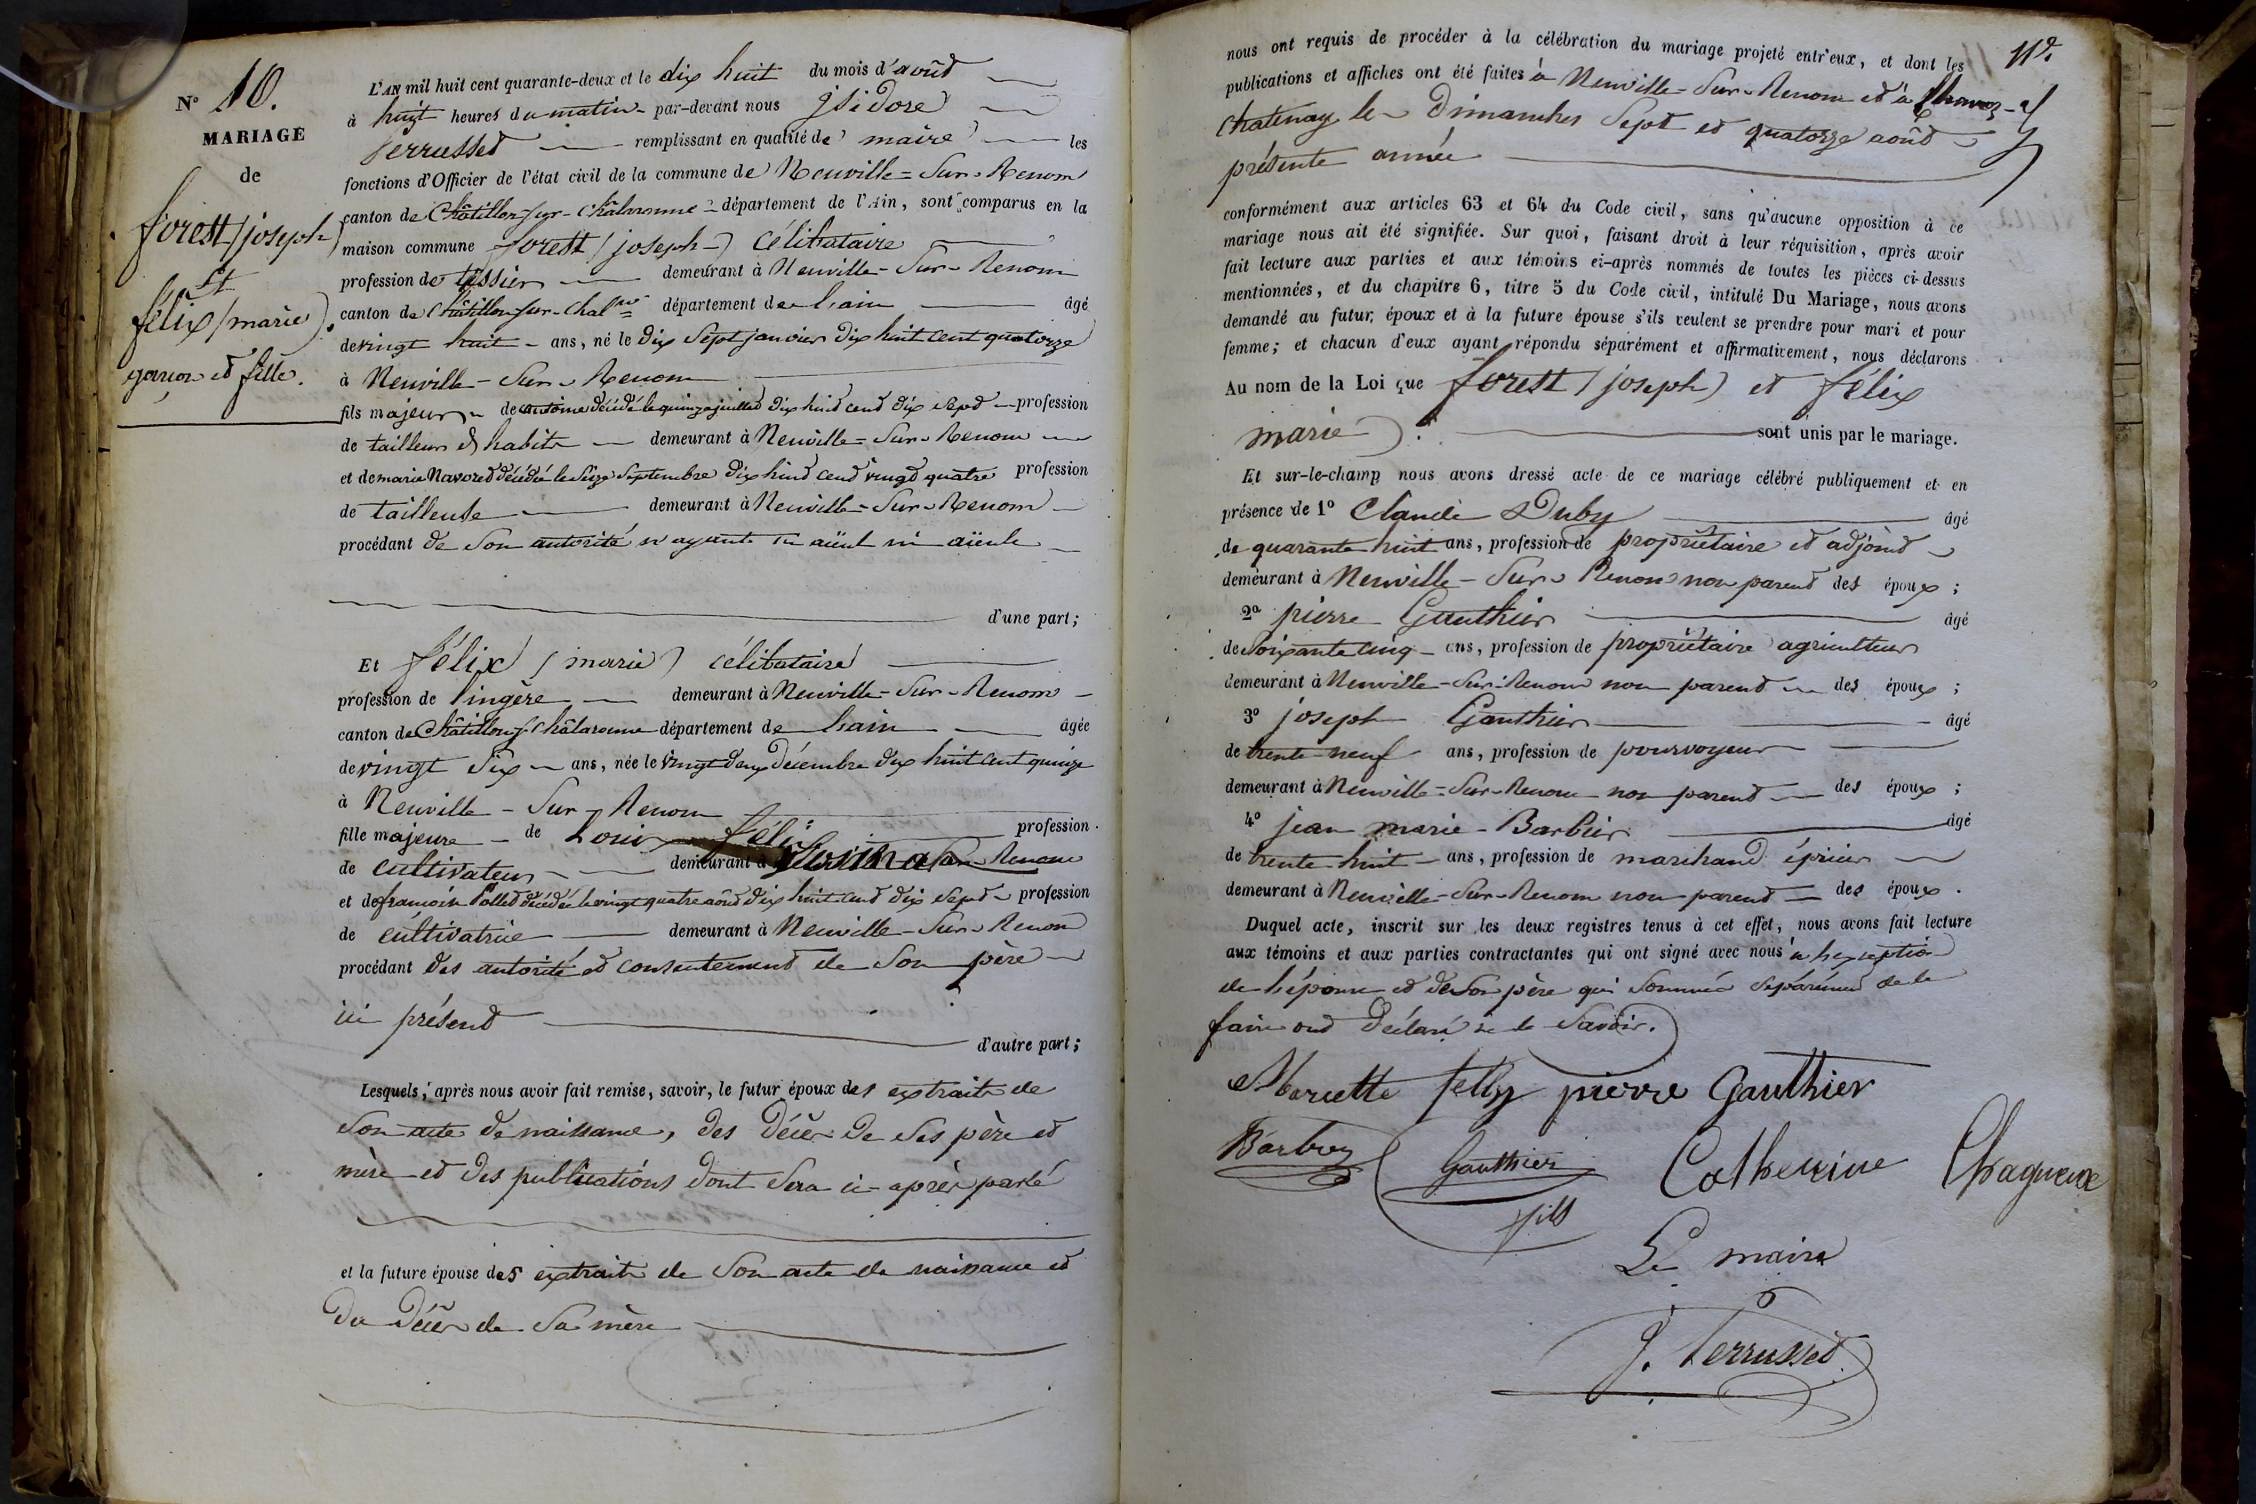 N° 10.
MARIAGE
de
forest (joseph)
et
félix (marie).
garçon et fille.
L'AN mil huit cent quarante-deux et le dix huit du mois d'août
à huit heures du matin par-devant nous isidore
Perrusset remplissant en qualité de maire les
fonctions d'Officier de l'état civil de la commune de Neuville-Sur-Renom
canton de Châtillon-sur-Châlaronne département de l'Ain, sont comparus en la
maison commune forest (joseph) célibataire
profession de tissier demeurant à Neuville-Sur-Renom
canton de Châtillon-sur-Chalne département de l'ain âgé
de vingt huit ans, né le dix Sept janvier dix huit cent quatorze
à Neuville-Sur-Renom
fils majeur de antoine décédé le quinze juillet dix huit cent dix Sept profession
de tailleur d'habits demeurant à Neuville-Sur-Renom
et de marie Navoret décédée le Seize Septembre dix huit cent vingt quatre profession
de tailleuse demeurant à Neuville-Sur-Renom
procédant de Son autorité n'ayant ni aïeul ni aïeule
d'une part;
Et félix (marie) célibataire
profession de lingère demeurant à Neuville-Sur-Renom
canton de Châtillon s. Châlaronne département de l'ain âgée
de vingt Six ans, née le vingt deux Décembre dix huit cent quinze
à Neuville-Sur-Renom
fille majeure de Louis félix profession
de cultivateur demeurant à Sur-Renom
et de françoise décédée le vingt quatre août dix huit cent dix Sept profession
de cultivatrice demeurant à Neuville-Sur-Renom
procédant des autorité et consentement de Son père
ici présent
d'autre part;
Lesquels, après nous avoir fait remise, savoir, le futur époux des extraits de
Son acte de naissance, des décès de Ses père et
mère et des publications dont Sera ci-après parlé
et la future épouse des extraits de Son acte de naissance et
du décès de Sa mère
11e.
nous ont requis de procéder à la célébration du mariage projeté entr'eux, et dont les
publications et affiches ont été faites à Neuville-Sur-Renom et à
Chatenay les Dimanches Sept et quatorze août
présente année
conformément aux articles 63 et 64 du Code civil, sans qu'aucune opposition à ce
mariage nous ait été signifiée. Sur quoi, faisant droit à leur réquisition, après avoir
fait lecture aux parties et aux témoins ci-après nommés de toutes les pièces ci-dessus
mentionnées, et du chapitre 6, titre 5 du Code civil, intitulé Du Mariage, nous avons
demandé au futur, époux et à la future épouse s'ils veulent se prendre pour mari et pour
femme; et chacun d'eux ayant répondu séparément et affirmativement, nous déclarons
Au nom de la Loi que forest (joseph) et félix
marie). sont unis par le mariage.
Et sur-le-champ nous avons dressé acte de ce mariage célébré publiquement et en
présence de 1° Claude Duby âgé
de quarante huit ans, profession de propriétaire et adjoint
demeurant à Neuville-Sur-Renom non parent des époux;
2° pierre Gauthier âgé
de Soixante cinq ans, profession de propriétaire agriculteur
demeurant à Neuville-Sur-Renom non parent des époux;
3° joseph Gauthier âgé
de trente neuf ans, profession de pourvoyeur
demeurant à Neuville-Sur-Renom non parent des époux;
4° jean marie Barbier âgé
de trente huit ans, profession de marchand épicier
demeurant à Neuville-Sur-Renom non parent des époux.
Duquel acte, inscrit sur les deux registres tenus à cet effet, nous avons fait lecture
aux témoins et aux parties contractantes qui ont signé avec nous à l'exception
de l'épouse et de Son père qui Sommés Séparément de le
faire ont déclaré ne le Savoir.
Mariette felix pierre Gauthier
Barbier Gauthier Catherine Chagneux
fils
Le maire
J. Perrusset